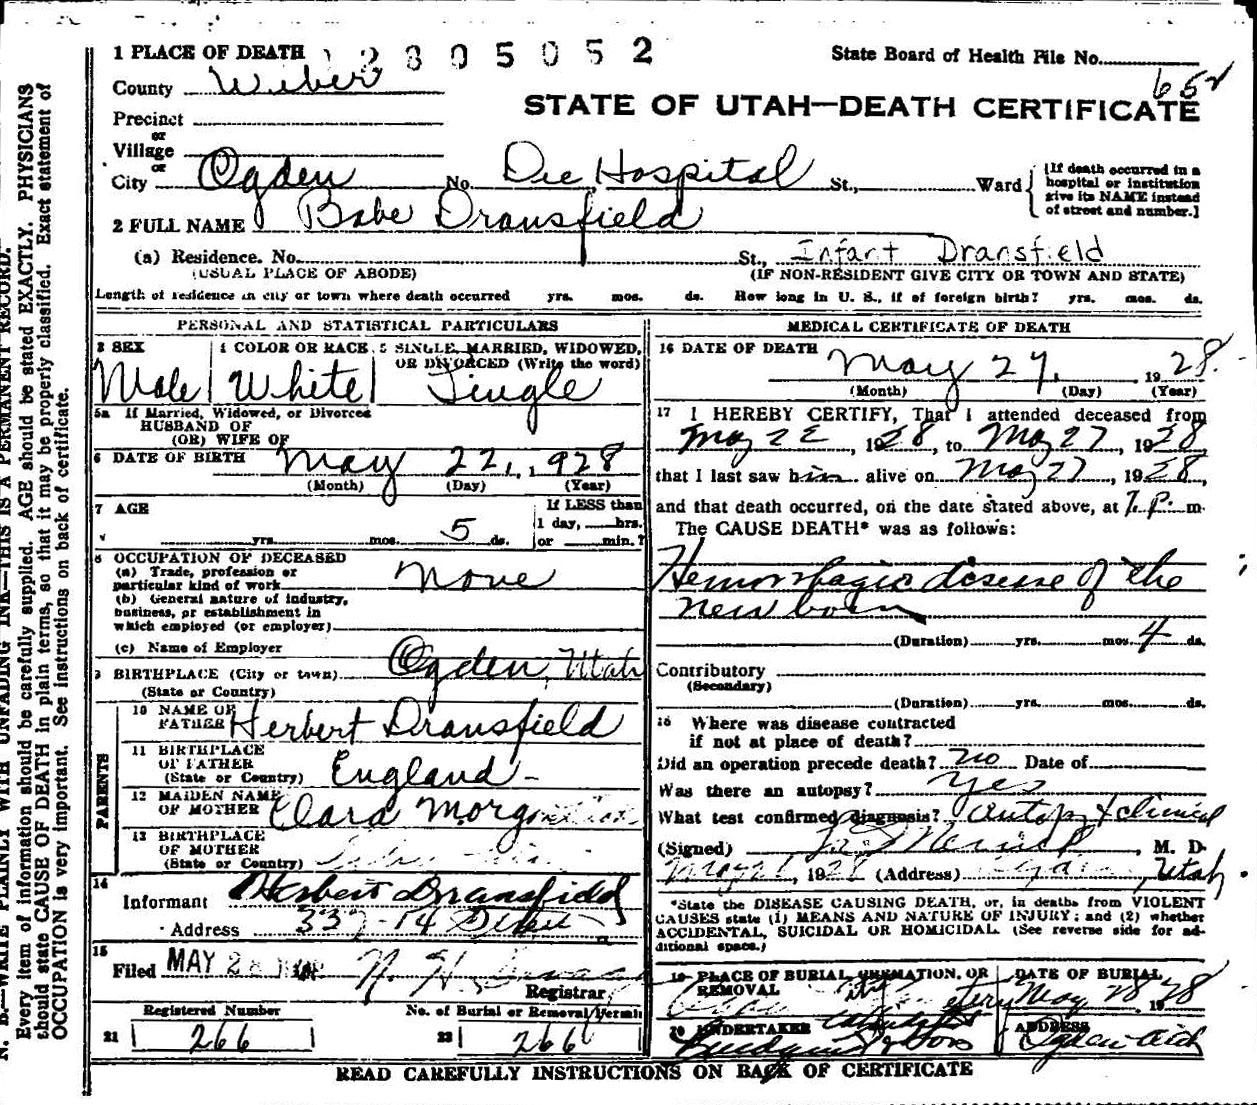 1 PLACE OF DEATH 2805052 State Board of Health File No.
652
County Weber
STATE OF UTAH—DEATH CERTIFICATE
Precinct
or
Village
or
City Ogden No. Dee Hospital St., Ward
[If death occurred in a
hospital or institution
give its NAME instead
of street and number.]
2 FULL NAME Babe Dransfield
(a) Residence. No. St., Infant Dransfield
(USUAL PLACE OF ABODE) (IF NON-RESIDENT GIVE CITY OR TOWN AND STATE)
Length of residence in city or town where death occurred yrs. mos. ds. How long in U. S., if of foreign birth? yrs. mos. ds.
PERSONAL AND STATISTICAL PARTICULARS
3 SEX 4 COLOR OR RACE 5 SINGLE, MARRIED, WIDOWED,
OR DIVORCED (Write the word)
Male White Single
5a If Married, Widowed, or Divorced
HUSBAND OF
(OR) WIFE OF
6 DATE OF BIRTH May 22, 1928
(Month) (Day) (Year)
7 AGE If LESS than
1 day, hrs.
yrs. mos. 5 ds. or min.?
8 OCCUPATION OF DECEASED
(a) Trade, profession or
particular kind of work None
(b) General nature of industry,
business, or establishment in
which employed (or employer)
(c) Name of Employer
9 BIRTHPLACE (City or town) Ogden, Utah
(State or Country)
PARENTS
10 NAME OF
FATHER Herbert Dransfield
11 BIRTHPLACE
OF FATHER
(State or Country) England
12 MAIDEN NAME
OF MOTHER Clara
13 BIRTHPLACE
OF MOTHER
(State or Country)
14
Informant Herbert Dransfield
Address 337 - 14 Street
15
Filed MAY 28 N. H.
Registrar
Registered Number No. of Burial or Removal Permit
21 266 22 266
MEDICAL CERTIFICATE OF DEATH
16 DATE OF DEATH May 27, 1928.
(Month) (Day) (Year)
17 I HEREBY CERTIFY, That I attended deceased from
May 22, 1928, to May 27, 1928
that I last saw him alive on May 27, 1928,
and that death occurred, on the date stated above, at 7 P. m.
The CAUSE DEATH* was as follows:
Hemorrhagic disease of the
new born
(Duration) yrs. mos. 4 ds.
Contributory
(Secondary)
(Duration) yrs. mos. ds.
18 Where was disease contracted
if not at place of death?
Did an operation precede death? no Date of
Was there an autopsy? yes
What test confirmed diagnosis? Autopsy + clinical
(Signed) M. D.
May 1928 (Address) Ogden, Utah.
*State the DISEASE CAUSING DEATH, or, in deaths from VIOLENT
CAUSES state (1) MEANS AND NATURE OF INJURY; and (2) whether
ACCIDENTAL, SUICIDAL OR HOMICIDAL. (See reverse side for ad-
ditional space.)
19 PLACE OF BURIAL, CREMATION, OR
REMOVAL
City Cemetery
DATE OF BURIAL
May 28 1928
20 UNDERTAKER
& Sons
ADDRESS
Ogden Utah
READ CAREFULLY INSTRUCTIONS ON BACK OF CERTIFICATE
N. B.—WRITE PLAINLY WITH UNFADING INK—THIS IS A PERMANENT RECORD.
Every item of information should be carefully supplied. AGE should be stated EXACTLY. PHYSICIANS
should state CAUSE OF DEATH in plain terms, so that it may be properly classified. Exact statement of
OCCUPATION is very important. See instructions on back of certificate.